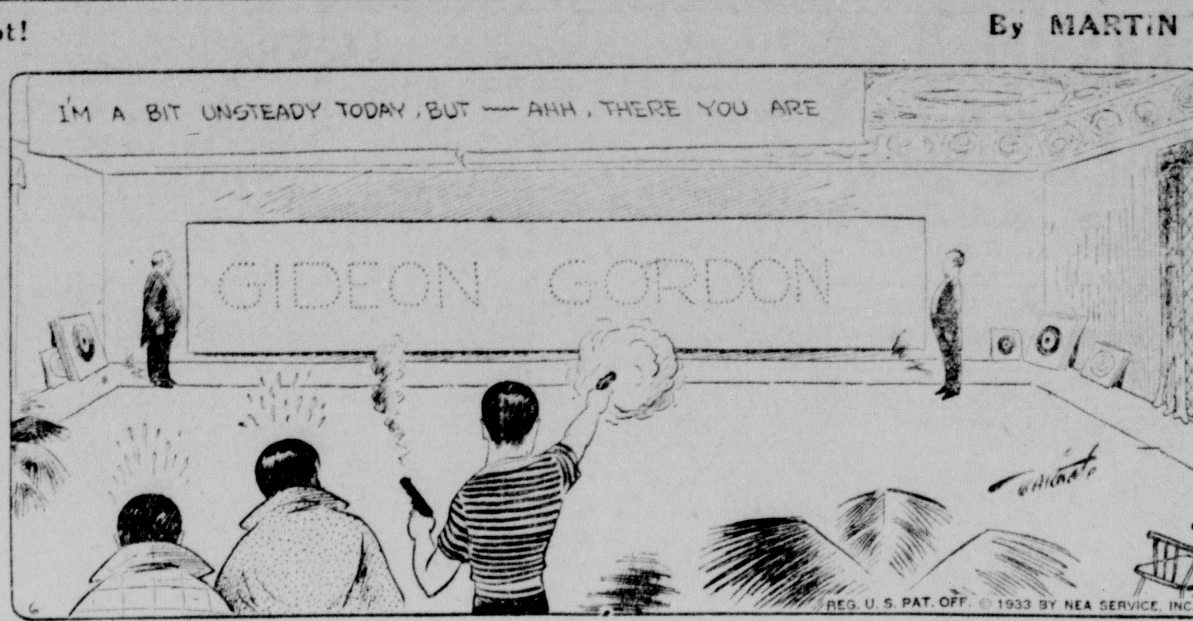 ot!
By MARTIN
I'M A BIT UNSTEADY TODAY, BUT — AHH, THERE YOU ARE
GIDEON GORDON
6
REG. U. S. PAT. OFF. © 1933 BY NEA SERVICE, INC